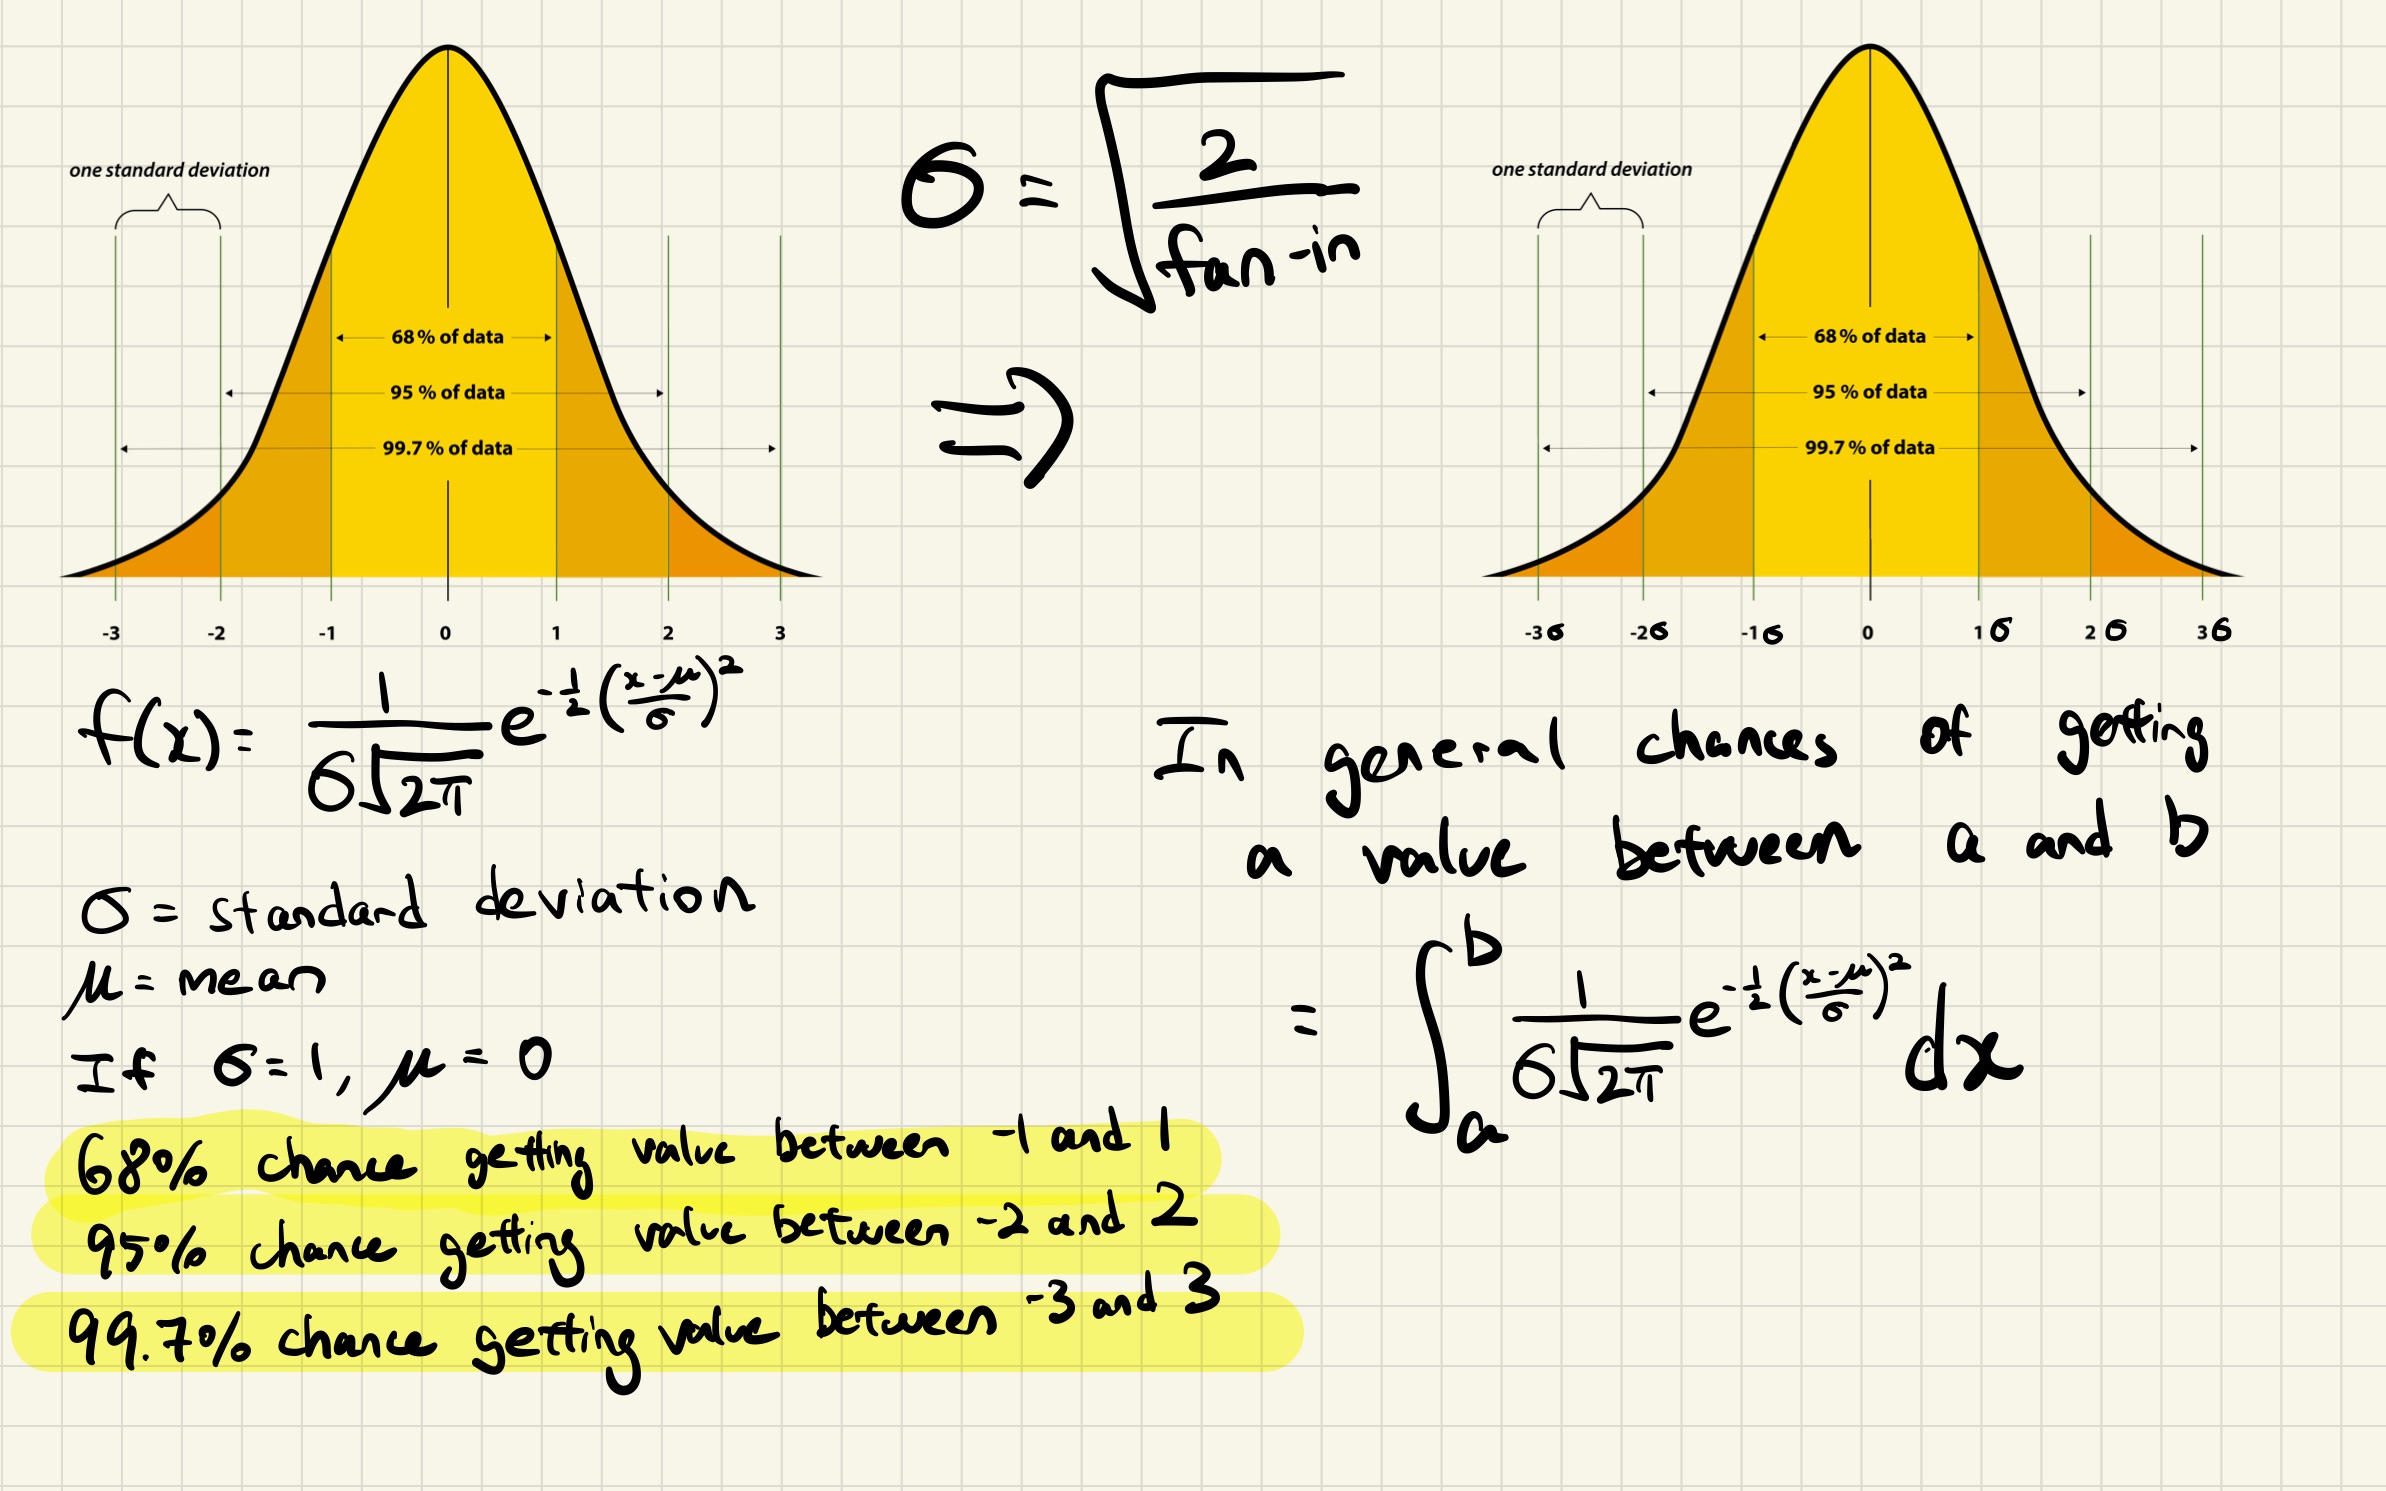 one standard deviation
68% of data
95 % of data
99.7 % of data
-3 -2 -1 0 1 2 3
σ = √(2/fan-in)
⇒
one standard deviation
68% of data
95 % of data
99.7 % of data
-3σ -2σ -1σ 0 1σ 2σ 3σ
f(x) = 1/(σ√2π) e^(-1/2((x-μ)/σ)^2)
σ = standard deviation
μ = mean
If σ=1, μ = 0
68% chance getting value between -1 and 1
95% chance getting value between -2 and 2
99.7% chance getting value between -3 and 3
In general chances of getting
a value between a and b
= ∫_a^b 1/(σ√2π) e^(-1/2((x-μ)/σ)^2) dx